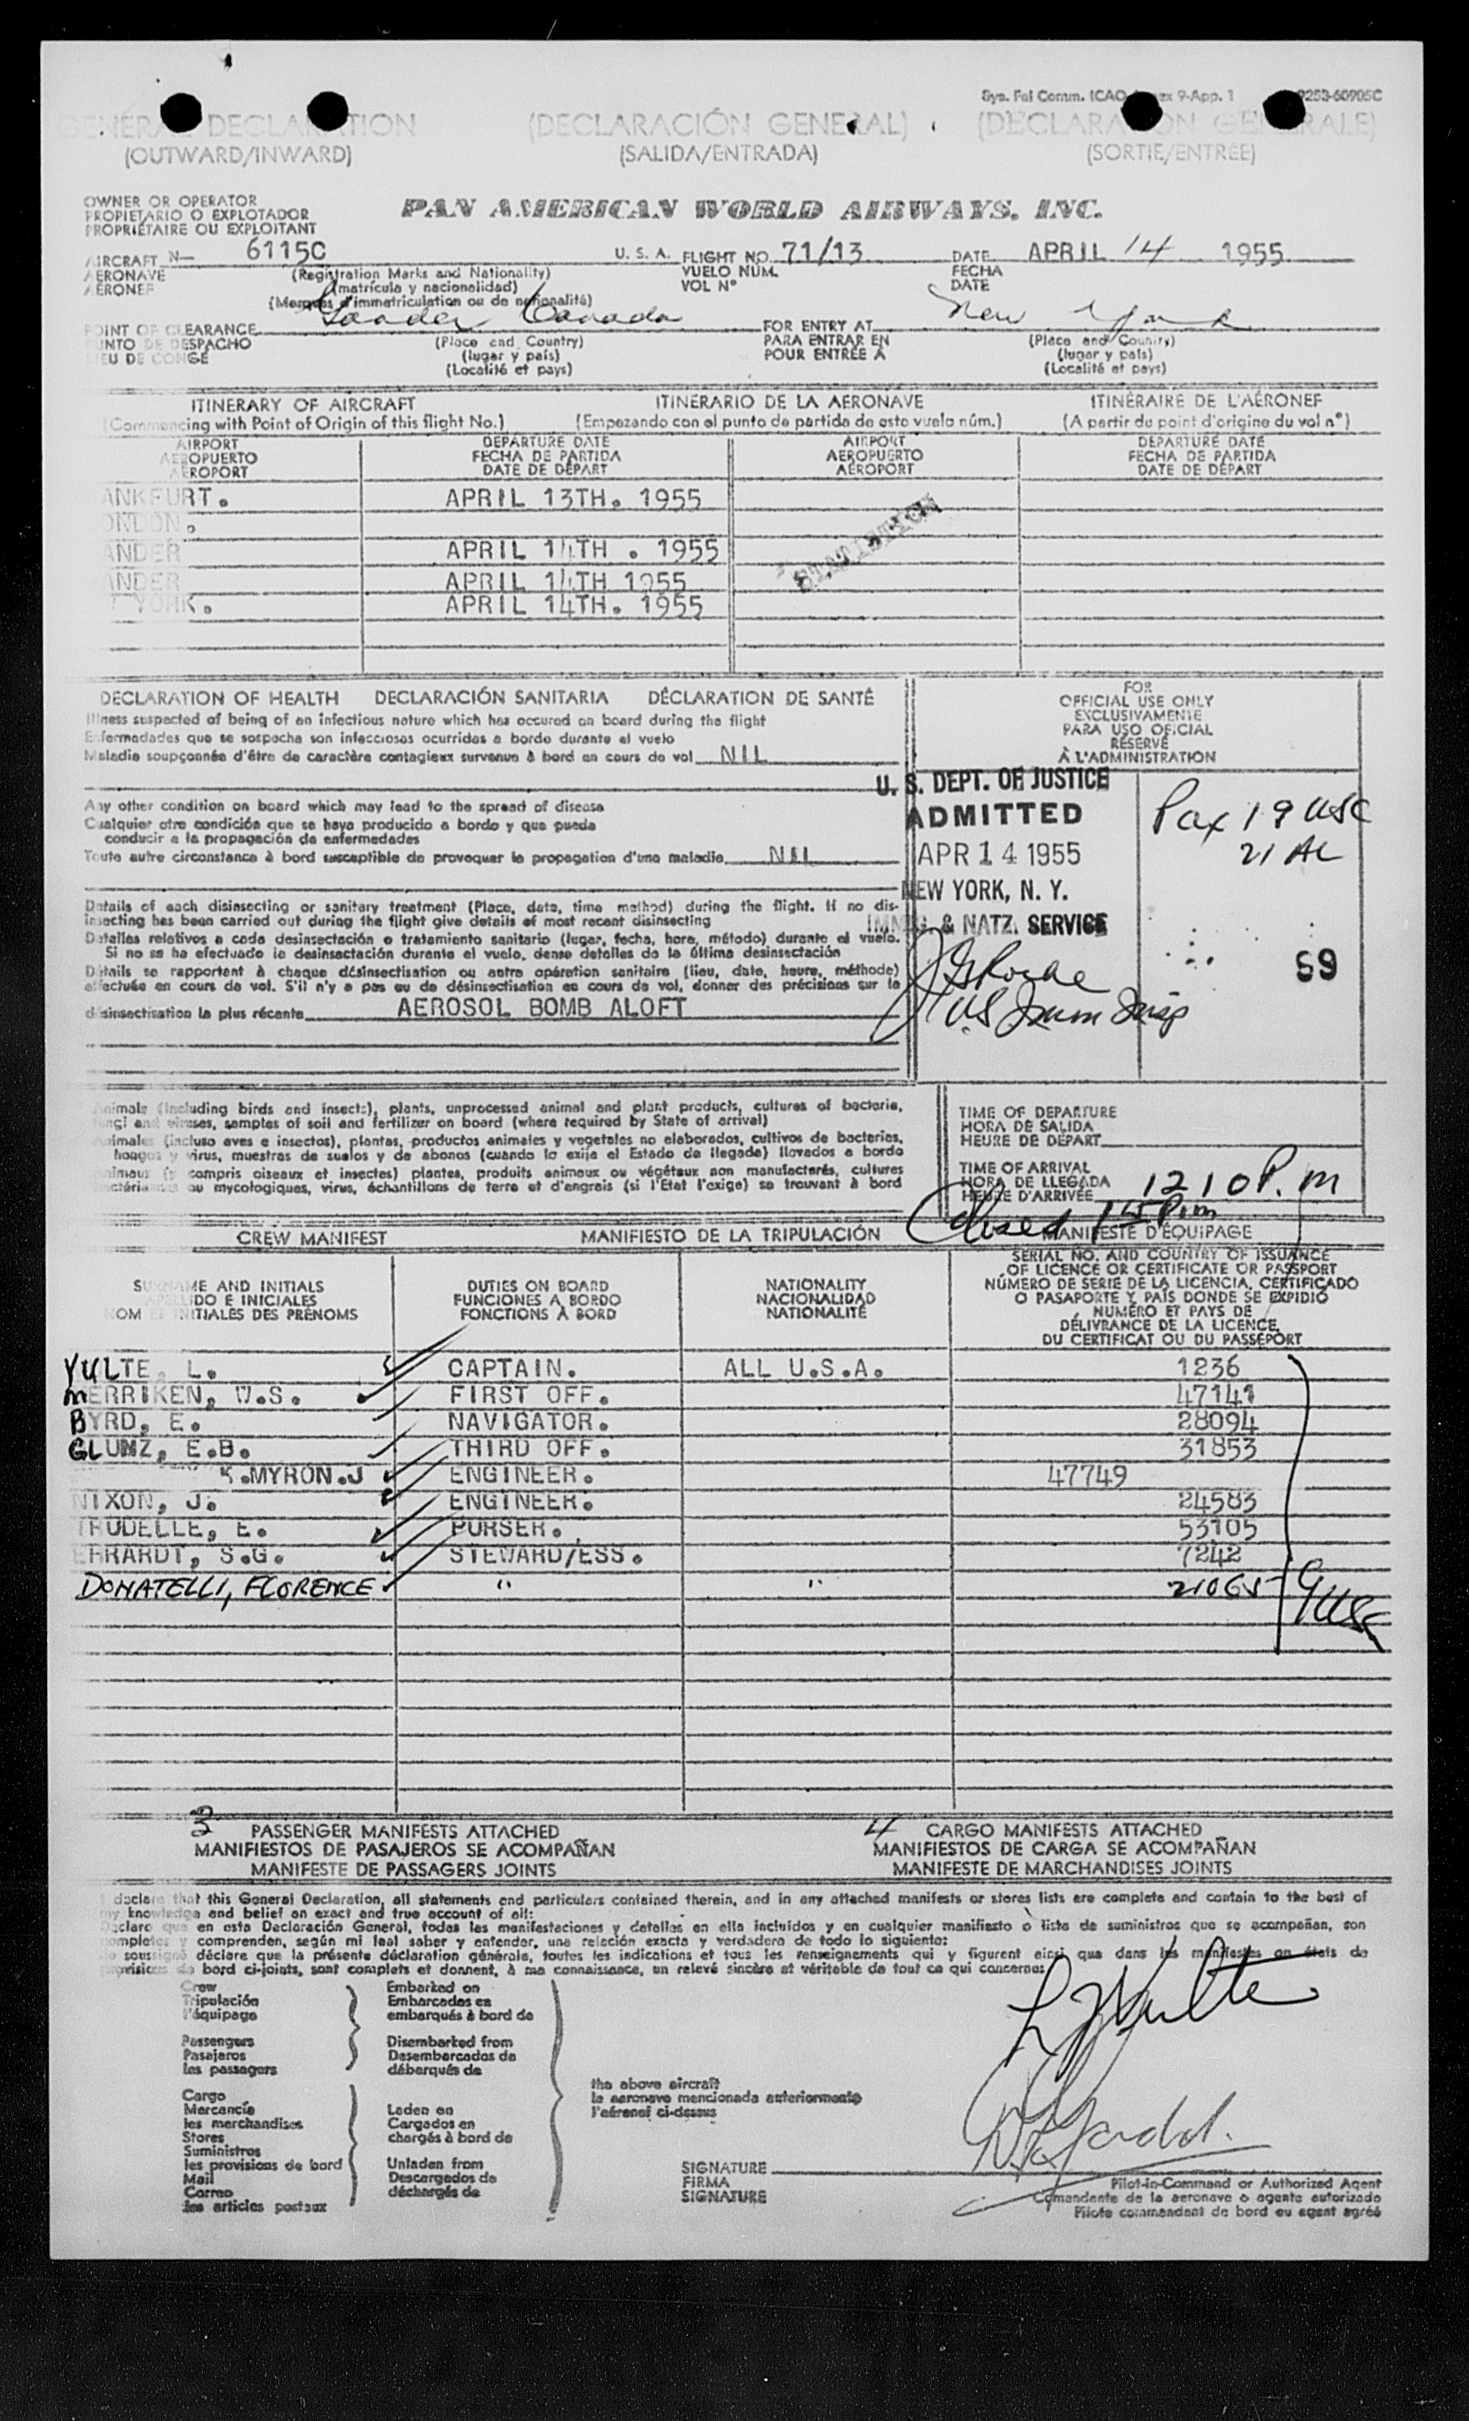 Sys. Fal Comm. ICAO Annex 9-App. 1 9253-60905C
GENERAL DECLARATION (DECLARACIÓN GENERAL) (DÉCLARATION GÉNÉRALE)
(OUTWARD/INWARD) (SALIDA/ENTRADA) (SORTIE/ENTRÉE)
OWNER OR OPERATOR
PROPIETARIO O EXPLOTADOR
PROPRIÉTAIRE OU EXPLOITANT
PAN AMERICAN WORLD AIRWAYS, INC.
AIRCRAFT N— 6115C U. S. A. FLIGHT NO. 71/13 DATE APRIL 14 1955
AERONAVE (Registration Marks and Nationality) VUELO NÚM. FECHA
AÉRONEF (matrícula y nacionalidad) VOL Nº DATE
(Marques d'immatriculation ou de nationalité)
POINT OF CLEARANCE Gander Canada FOR ENTRY AT New York
PUNTO DE DESPACHO (Place and Country) PARA ENTRAR EN (Place and Country)
LIEU DE CONGÉ (lugar y país) POUR ENTRÉE À (lugar y país)
(Localité et pays) (Localité et pays)
ITINERARY OF AIRCRAFT ITINERARIO DE LA AERONAVE ITINÉRAIRE DE L'AÉRONEF
(Commencing with Point of Origin of this flight No.) (Empezando con el punto de partida de este vuelo núm.) (A partir du point d'origine du vol nº)
AIRPORT DEPARTURE DATE AIRPORT DEPARTURE DATE
AEROPUERTO FECHA DE PARTIDA AEROPUERTO FECHA DE PARTIDA
AÉROPORT DATE DE DÉPART AÉROPORT DATE DE DÉPART
ANKFURT. APRIL 13TH. 1955
ONDON.
ANDER APRIL 14TH . 1955
ANDER APRIL 14TH 1955
YORK. APRIL 14TH. 1955
STATISTICS
DECLARATION OF HEALTH DECLARACIÓN SANITARIA DÉCLARATION DE SANTÉ
Illness suspected of being of an infectious nature which has occured on board during the flight
Enfermedades que se sospecha son infecciosas ocurridas a bordo durante el vuelo
Maladie soupçonnée d'être de caractère contagieux survenue à bord en cours de vol NIL
Any other condition on board which may lead to the spread of disease
Cualquier otra condición que se haya producido a bordo y que pueda
conducir a la propagación de enfermedades
Toute autre circonstance à bord susceptible de provoquer la propagation d'une maladie NIL
Details of each disinsecting or sanitary treatment (Place, date, time method) during the flight. If no dis-
insecting has been carried out during the flight give details of most recent disinsecting
Detalles relativos a cada desinsectación o tratamiento sanitario (lugar, fecha, hora, método) durante el vuelo.
Si no se ha efectuado la desinsectación durante el vuelo, dense detalles de la última desinsectación
Détails se rapportant à chaque désinsectisation ou autre opération sanitaire (lieu, date, heure, méthode)
effectuée en cours de vol. S'il n'y a pas eu de désinsectisation en cours de vol, donner des précisions sur la
désinsectisation la plus récente AEROSOL BOMB ALOFT
FOR
OFFICIAL USE ONLY
EXCLUSIVAMENTE
PARA USO OFICIAL
RÉSERVÉ
À L'ADMINISTRATION
U. S. DEPT. OF JUSTICE
ADMITTED
APR 14 1955
NEW YORK, N. Y.
IMMIG. & NATZ. SERVICE
US Immn Insp
Pax 19 USC
21 AL
59
Animals (including birds and insects), plants, unprocessed animal and plant products, cultures of bacteria,
fungi and viruses, samples of soil and fertilizer on board (where required by State of arrival)
Animales (incluso aves e insectos), plantas, productos animales y vegetales no elaborados, cultivos de bacterias,
hongos y virus, muestras de suelos y de abonos (cuando lo exija el Estado de llegada) llevados a bordo
Animaux (y compris oiseaux et insectes) plantes, produits animaux ou végétaux non manufacturés, cultures
bactériennes ou mycologiques, virus, échantillons de terre et d'engrais (si l'Etat l'exige) se trouvant à bord
TIME OF DEPARTURE
HORA DE SALIDA
HEURE DE DÉPART
TIME OF ARRIVAL
HORA DE LLEGADA
HEURE D'ARRIVÉE 1210 P.m
Closed 1 15 P.m
CREW MANIFEST MANIFIESTO DE LA TRIPULACIÓN MANIFESTE D'ÉQUIPAGE
SURNAME AND INITIALS DUTIES ON BOARD NATIONALITY
APELLIDO E INICIALES FUNCIONES A BORDO NACIONALIDAD
NOM ET INITIALES DES PRÉNOMS FONCTIONS À BORD NATIONALITÉ
SERIAL NO. AND COUNTRY OF ISSUANCE
OF LICENCE OR CERTIFICATE OR PASSPORT
NÚMERO DE SERIE DE LA LICENCIA, CERTIFICADO
O PASAPORTE Y PAÍS DONDE SE EXPIDIÓ
NUMÉRO ET PAYS DE
DÉLIVRANCE DE LA LICENCE,
DU CERTIFICAT OU DU PASSEPORT
YULTE, L. CAPTAIN. ALL U.S.A. 1236
MERRIKEN, W.S. FIRST OFF. 47141
BYRD, E. NAVIGATOR. 28094
GLUNZ, E.B. THIRD OFF. 31853
K.MYRON.J ENGINEER. 47749
NIXON, J. ENGINEER. 24583
TRUDELLE, E. PURSER. 53105
EHRARDT, S.G. STEWARD/ESS. 7242
DONATELLI, FLORENCE " " 21065
9 USC
3 PASSENGER MANIFESTS ATTACHED 4 CARGO MANIFESTS ATTACHED
MANIFIESTOS DE PASAJEROS SE ACOMPAÑAN MANIFIESTOS DE CARGA SE ACOMPAÑAN
MANIFESTE DE PASSAGERS JOINTS MANIFESTE DE MARCHANDISES JOINTS
I declare that this General Declaration, all statements and particulars contained therein, and in any attached manifests or stores lists are complete and contain to the best of
my knowledge and belief an exact and true account of all:
Declaro que en esta Declaración General, todas las manifestaciones y detalles en ella incluidos y en cualquier manifiesto o lista de suministros que se acompañan, son
completos y comprenden, según mi leal saber y entender, una relación exacta y verdadera de todo lo siguiente:
Je soussigné déclare que la présente déclaration générale, toutes les indications et tous les renseignements qui y figurent ainsi que dans les manifestes en états de
provisions de bord ci-joints, sont complets et donnent, à ma connaissance, un relevé sincère et véritable de tout ce qui concerne:
Crew Embarked on
Tripulación Embarcados en
l'équipage embarqués à bord de
Passengers Disembarked from
Pasajeros Desembarcados de
les passagers débarqués de
the above aircraft
la aeronave mencionada anteriormente
l'aéronef ci-dessus
Cargo
Mercancía Laden on
les merchandises Cargados en
Stores chargés à bord de
Suministros
les provisions de bord Unladen from
Mail Descargados de
Correo déchargés de
les articles postaux
L J Vulte
SIGNATURE
FIRMA
SIGNATURE
Pilot-in-Command or Authorized Agent
Comandante de la aeronave o agente autorizado
Pilote commandant de bord ou agent agréé